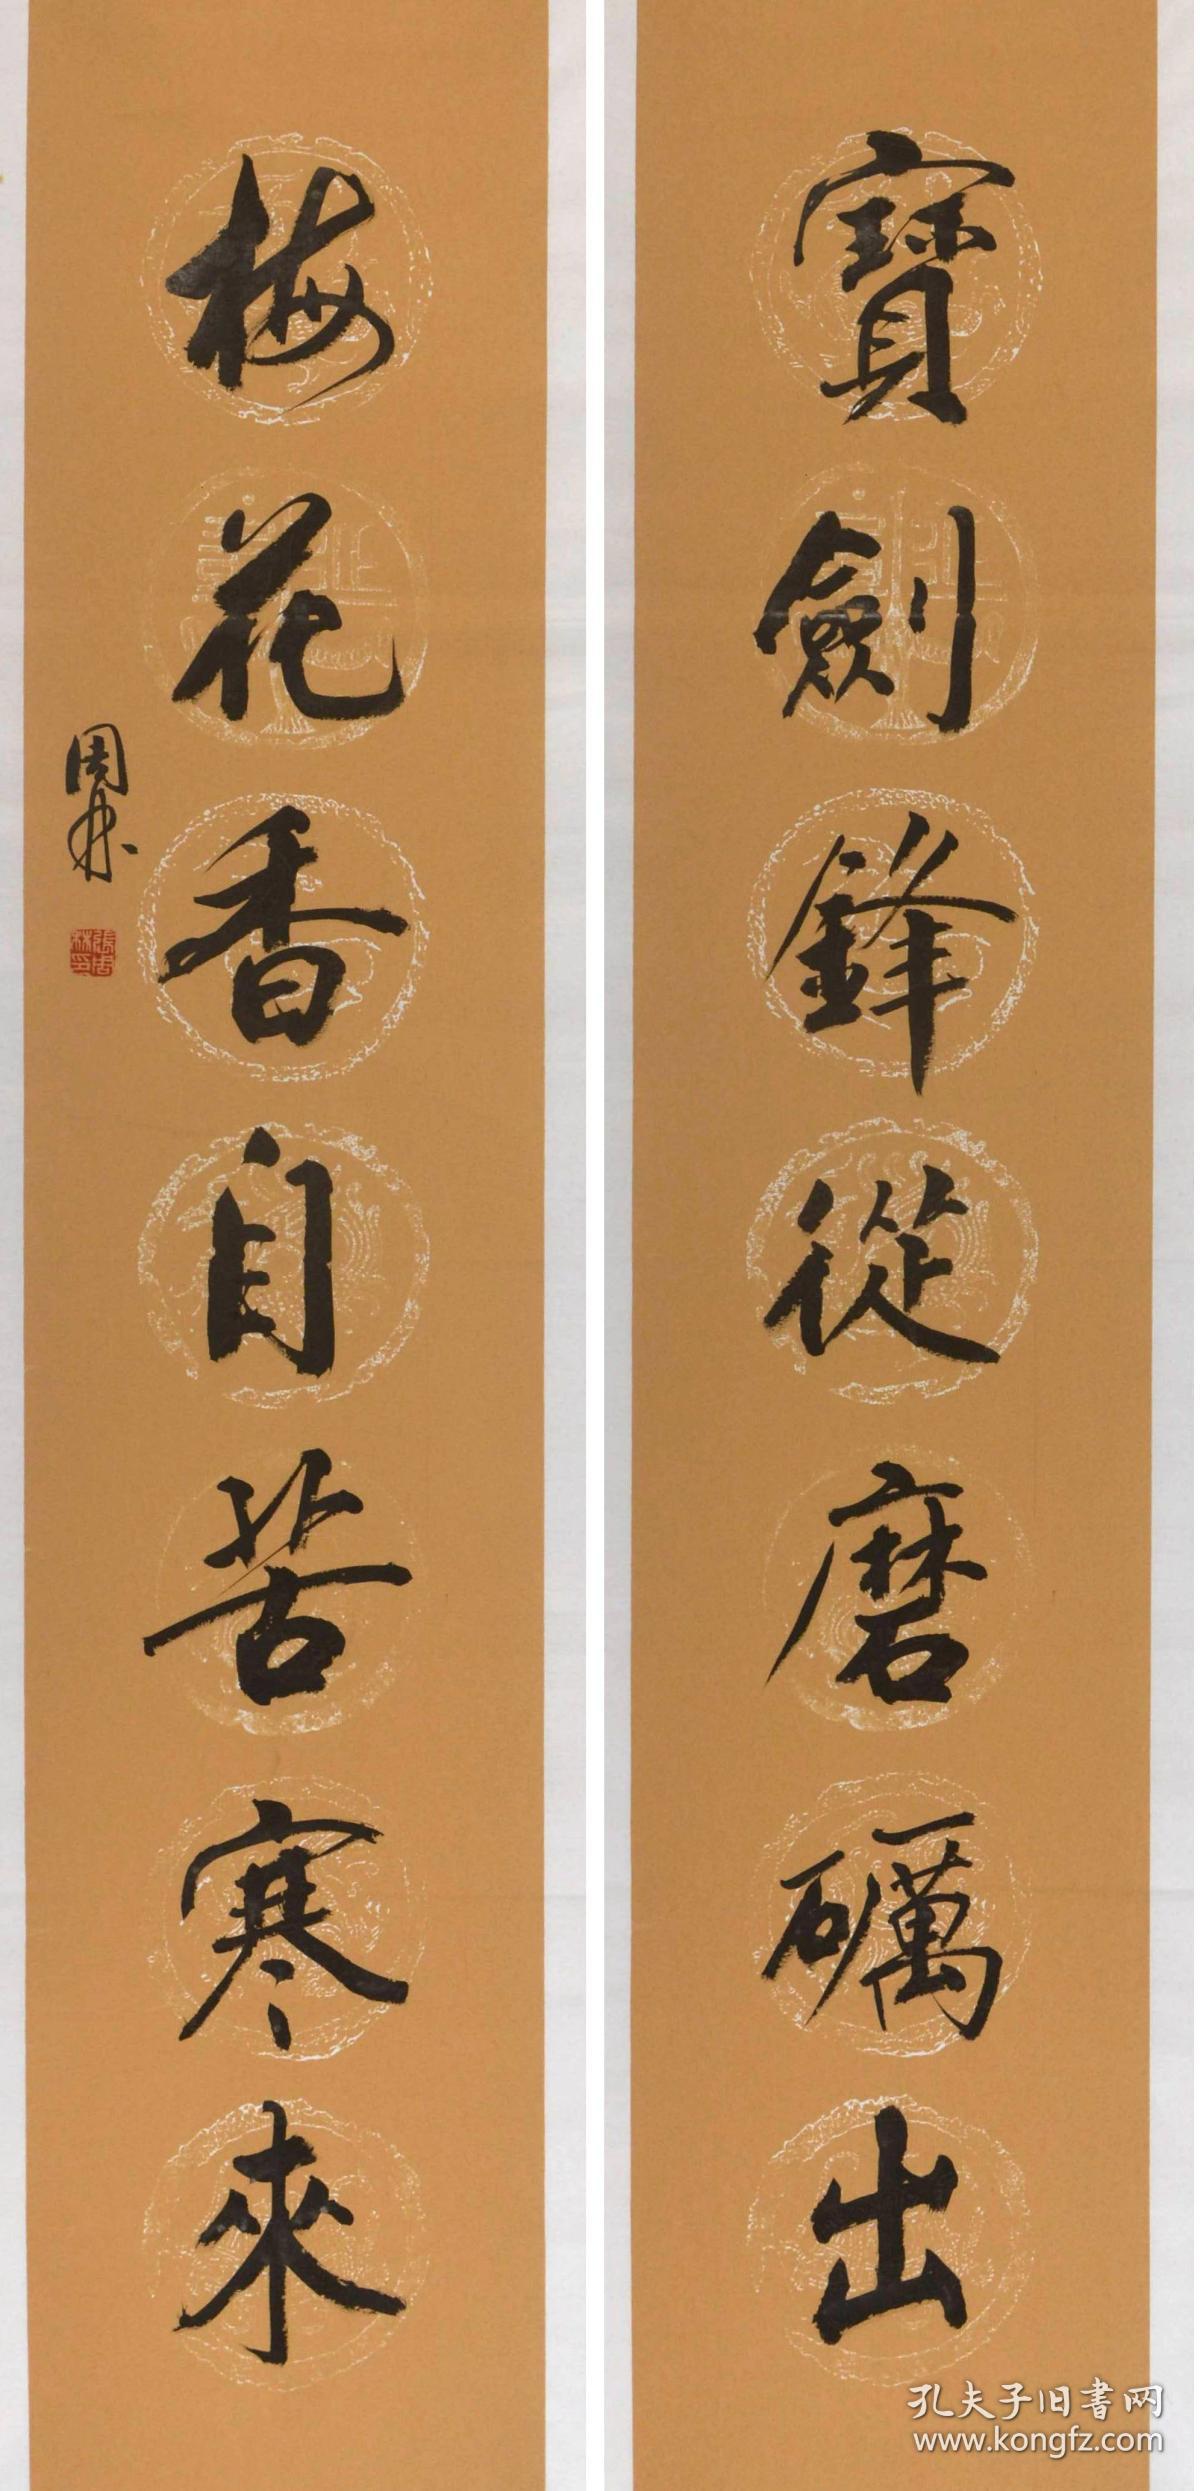 寶劍鋒從磨礪出
梅花香自苦寒來
周林
張周林印
孔夫子旧书网
www.kongfz.com